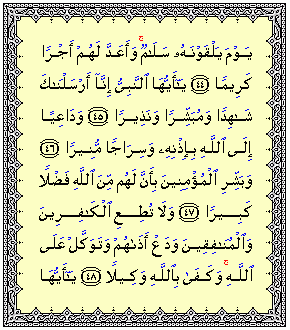 يَوْمَ يَلْقَوْنَهُۥ سَلَـٰمٌ ۚ وَأَعَدَّ لَهُمْ أَجْرًا
كَرِيمًا ﴿٤٤﴾ يَـٰٓأَيُّهَا ٱلنَّبِىُّ إِنَّآ أَرْسَلْنَـٰكَ
شَـٰهِدًا وَمُبَشِّرًا وَنَذِيرًا ﴿٤٥﴾ وَدَاعِيًا
إِلَى ٱللَّهِ بِإِذْنِهِۦ وَسِرَاجًا مُّنِيرًا ﴿٤٦﴾
وَبَشِّرِ ٱلْمُؤْمِنِينَ بِأَنَّ لَهُم مِّنَ ٱللَّهِ فَضْلًا
كَبِيرًا ﴿٤٧﴾ وَلَا تُطِعِ ٱلْكَـٰفِرِينَ
وَٱلْمُنَـٰفِقِينَ وَدَعْ أَذَىٰهُمْ وَتَوَكَّلْ عَلَى
ٱللَّهِ ۚ وَكَفَىٰ بِٱللَّهِ وَكِيلًا ﴿٤٨﴾ يَـٰٓأَيُّهَا